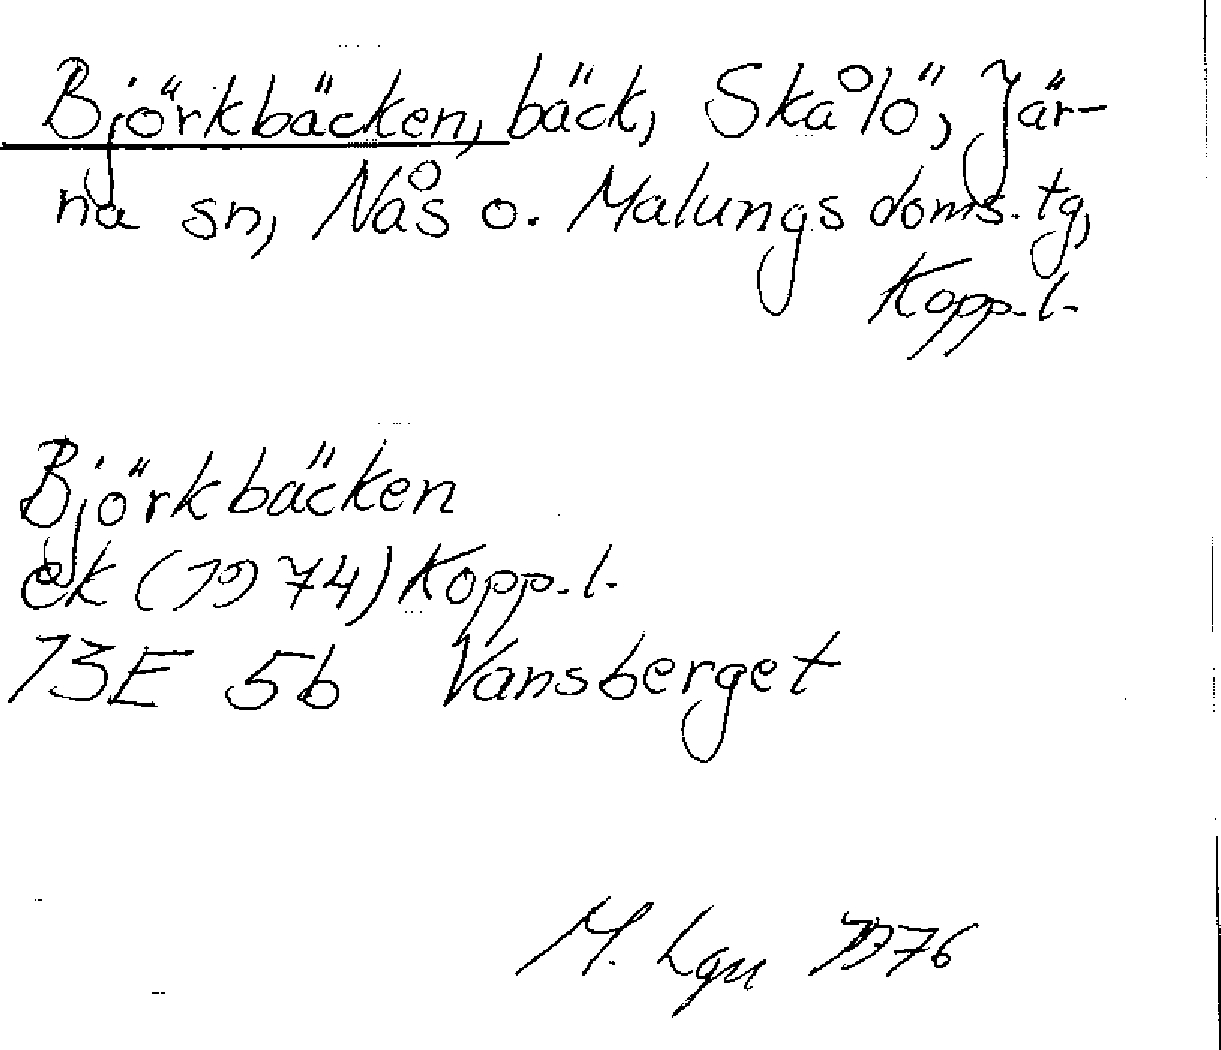 Björkbäcken, bäck, Skålö, Jär-
na sn, Nås o. Malungs doms.tg,
Kopp.l.
Björkbäcken
ek (1974) Kopp.l.
13E 5b Vansberget
M. Lgn 1976